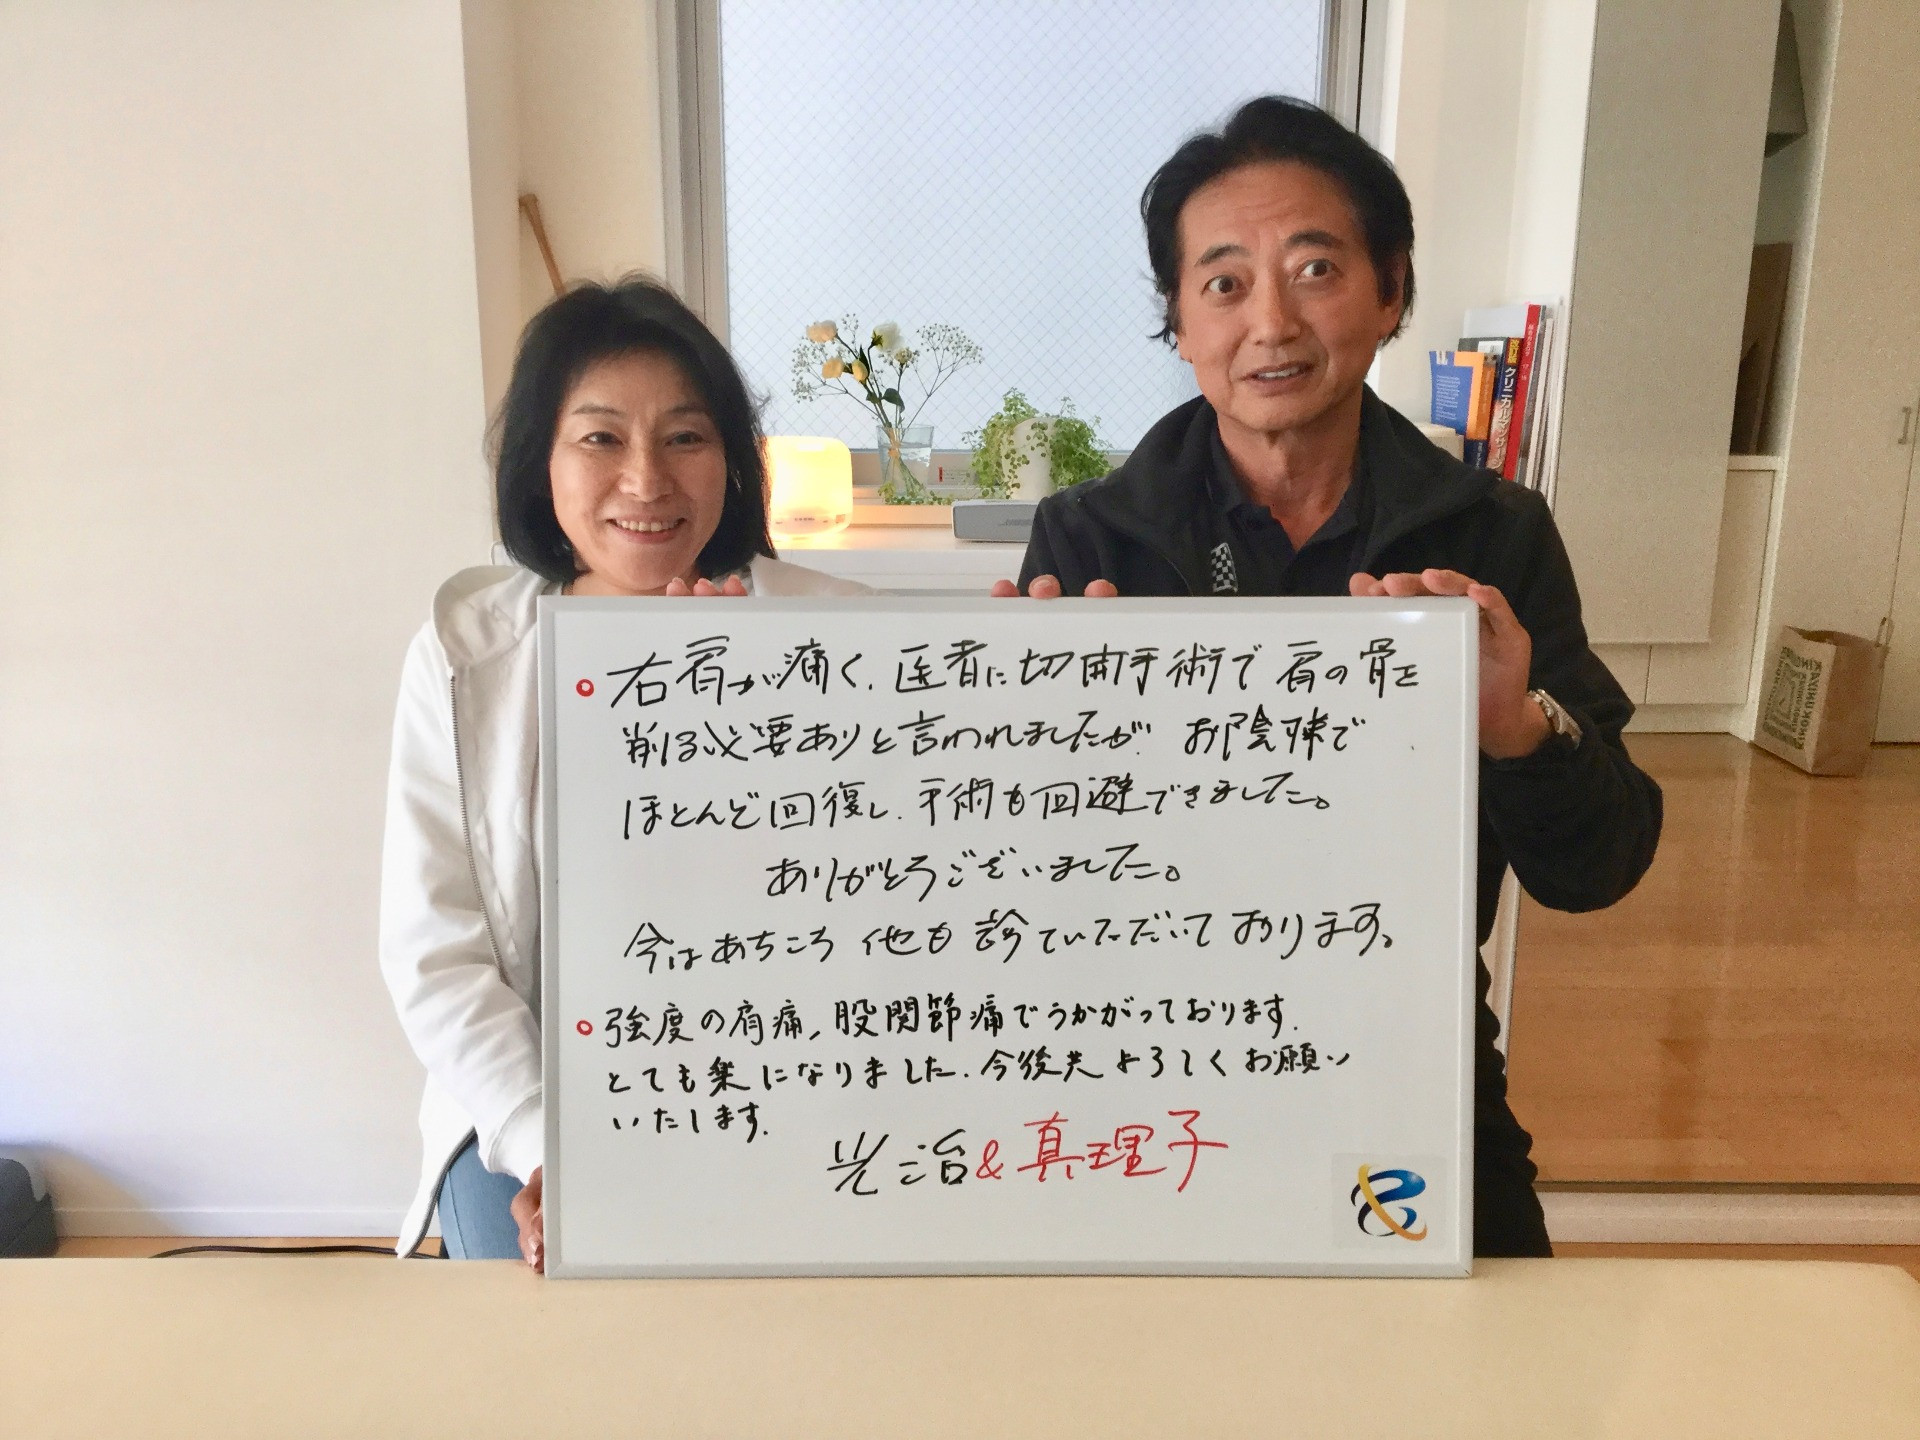 右肩が痛く、医者に切開手術で肩の骨を
削る必要ありと言われましたが、お陰様で
ほとんど回復し、手術も回避できました。
ありがとうございました。
今はあちこち他も診ていただいております。
強度の肩痛、股関節痛でうかがっております。
とても楽になりました。今後共よろしくお願い
いたします。
光治&真理子
クリニカルマッサージ
改訂版
BOSE
KINOKUNIYA